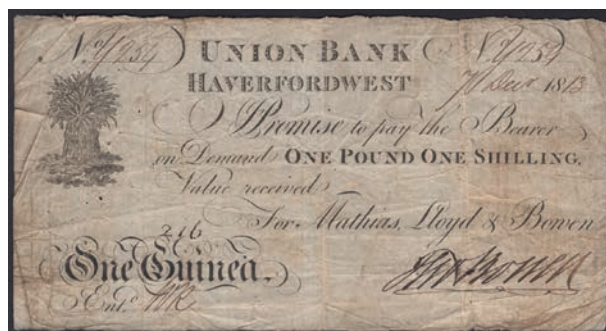 No. UNION BANK No.
HAVERFORDWEST
7 Decr 1813
I Promise to pay the Bearer
on Demand ONE POUND ONE SHILLING,
Value received
216 For Mathias, Lloyd & Bowen
One Guinea.
Entd.